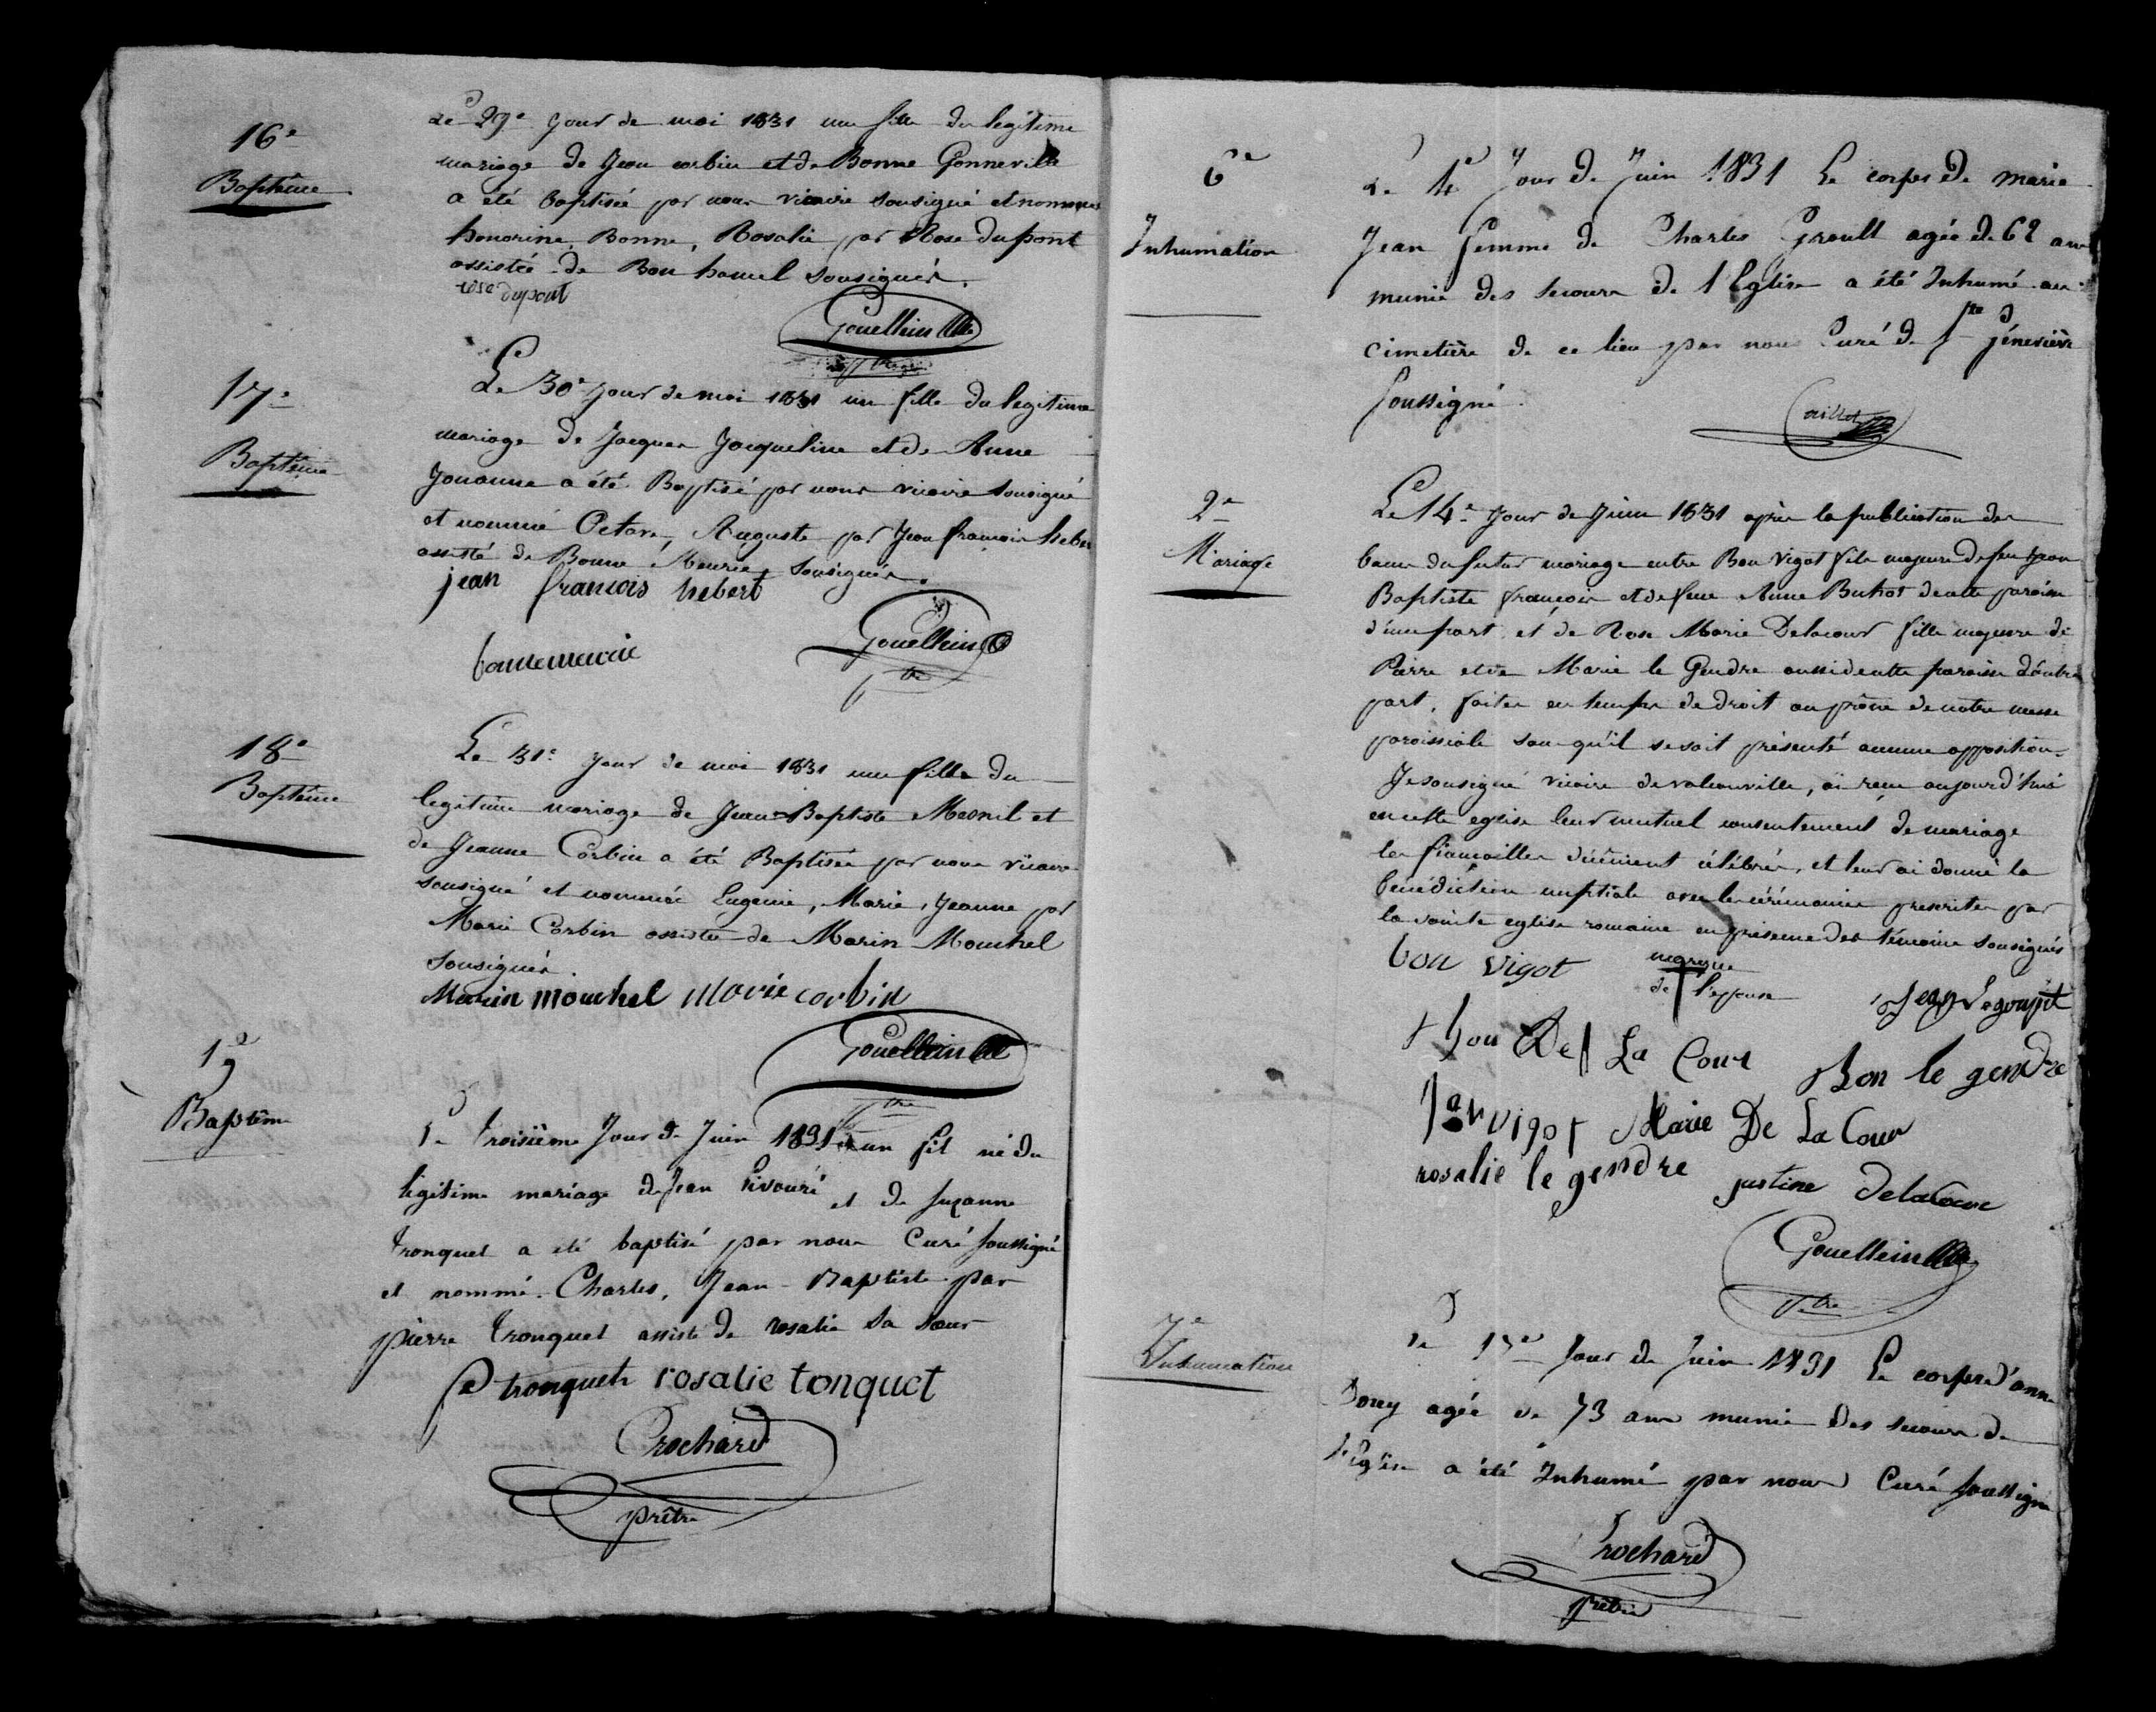 16e
Baptême
Le 29e jour de mai 1831 une fille du legitime
mariage de Jean corbin et de Bonne Gonneville
a été baptisée par nous vicaire sousigné et nommée
honorine, Bonne, Rosalie par Rose dupont
assistée de Bon hamel sousignés.
rose dupont
Gouellain
ptre
17e
Baptême
Le 30e jour de mai 1831 une fille du legitime
mariage de Jacques Jacqueline et de Anne
Jouanne a été Baptisé par nous vicaire sousigné
et nommé Octave, Auguste par Jean françois heber
assisté de Bonne Meurie, sousignés.
jean francois hebert
bonne meurie
Gouellain
ptre
18e
Baptême
Le 31e jour de mai 1831 une fille du
legitime mariage de Jean-Baptiste Mesnil et
de Jeanne Corbin a été Baptisée par nous vicaire
sousigné et nommée Eugenie, Marie, Jeanne par
Marie Corbin assistée de Marin Mouchel
sousignés.
Marin mouchel marie corbin
Gouellain
ptre
19e
Baptême
Le troisième Jour de Juin 1831 un fils né du
légitime mariage de Jean et de suzanne
tronquet a été baptisé par nous Curé soussigné
et nommé Charles, Jean-Baptiste par
pierre tronquet assisté de rosalie sa soeur
P tronquet rosalie tonquet
Crochard
prêtre
6e
Inhumation
Le 4e Jour de Juin 1831 Le corps de marie
Jean femme de Charles Groult agée de 62 ans
munie des secours de l'Eglise a été Inhumé au
cimetière de ce lieu par nous Curé de Ste Géneviève
soussigné.
Caillet
2e
Mariage
Le 14e jour de Juin 1831 après la publication des
bans du futur mariage entre Bon Vigot fils majeure de feu Jean
Baptiste françois et de feue Anne Buhot de cette paroisse
d'une part, et de Rose Marie Delacour fille majeure de
Pierre et de Marie le Gendre aussi de cette paroisse d'autre
part, faites en temps de droit au prône de notre messe
paroissiale sans qu'il se soit présenté aucune opposition
Je sousigné vicaire de valcanville, ai reçu aujourd'hui
en cette eglise leur mutuel consentement de mariage
les fiançailles dûement célébrés, et leur ai donné la
bénédiction nuptiale avec les cérémonies prescrites par
la sainte eglise romaine en présence des témoins sousignés
bon vigot marque de l'epouse Jean Legoupil
De La Cour Bon le gendre
Jan vigot Marie De La Cour
rosalie le gendre justine delacour
Gouellain
ptre
7e
Inhumation
Le Jour de Juin 1831 Le corps d'anne
agée de 73 ans munie des secours de
l'Eglise a été Inhumé par nous Curé soussigné
Crochard
prêtre